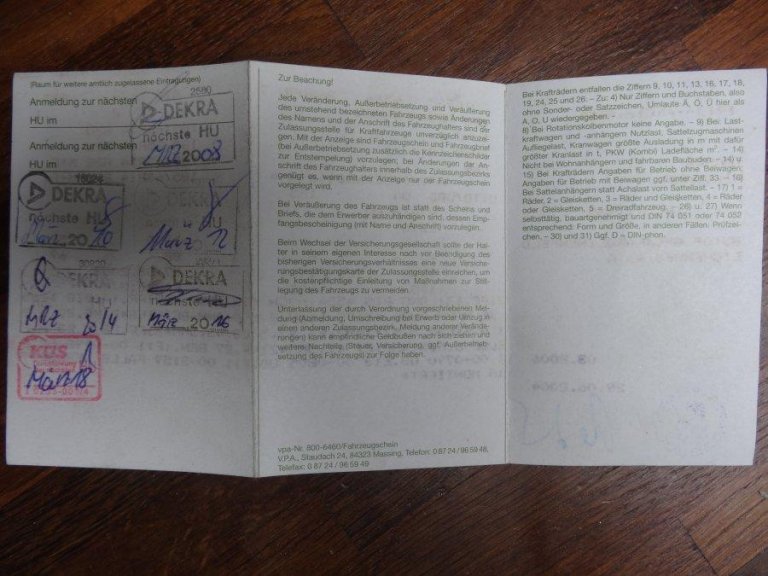 (Raum für weitere amtlich zugelassene Eintragungen)
Anmeldung zur nächsten
HU im
Anmeldung zur nächsten
HU im
2580
DEKRA
nächste HU
MRZ 2008
DEKRA
nächste HU
März 2010
März 12
HU
MRZ 2014
DEKRA
nächste HU
März 2016
KÜS
März 18
Zur Beachung!
Jede Veränderung, Außerbetriebsetzung und Veräußerung
des umstehend bezeichneten Fahrzeugs sowie Änderungen
des Namens und der Anschrift des Fahrzeughalters sind der
Zulassungsstelle für Kraftfahrzeuge unverzüglich anzuzei-
gen. Mit der Anzeige sind Fahrzeugschein und Fahrzeugbrief
(bei Außerbetriebsetzung zusätzlich die Kennzeichenschilder
zur Entstempelung) vorzulagen, bei Änderungen der An-
schrift des Fahrzeughalters innerhalb des Zulassungsbezirks
genügt es, wenn mit der Anzeige nur der Fahrzeugschein
vorgelegt wird.
Bei Veräußerung des Fahrzeugs ist statt des Scheins und
Briefs, die dem Erwerber auszuhändigen sind, dessen Emp-
fangsbescheinigung (mit Name und Anschrift) vorzulegen.
Beim Wechsel der Versicherungsgesellschaft sollte der Hal-
ter in seinem eigenen Interesse noch vor Beendigung des
bisherigen Versicherungsverhältnisses eine neue Versiche-
rungsbestätigungskarte der Zulassungsstelle einreichen, um
die kostenpflichtige Einleitung von Maßnahmen zur Stil-
legung des Fahrzeugs zu vermeiden.
Unterlassung der durch Verordnung vorgeschriebenen Mel-
dung (Abmeldung, Umschreibung bei Erwerb oder Umzug in
einen anderen Zulassungsbezirk, Meldung anderer Verände-
rungen) kann empfindliche Geldbußen nach sich ziehen und
weitere Nachteile (Steuer, Versicherung, ggf. Außerbetrieb-
setzung des Fahrzeugs) zur Folge haben.
vpa-Nr. 800-6460/Fahrzeugschein
V.P.A., Staudach 24, 84323 Massing, Telefon: 0 87 24 / 96 59 48,
Telefax: 0 87 24 / 96 59 49
Bei Krafträdern entfallen die Ziffern 9, 10, 11, 13, 16, 17, 18,
19, 24, 25 und 26. – Zu: 4) Nur Ziffern und Buchstaben, also
ohne Sonder- oder Satzzeichen, Umlaute Ä, Ö, Ü hier als
A, O, U wiedergegeben. –
8) Bei Rotationskolbenmotor keine Angabe. – 9) Bei Last-
kraftwagen und -anhängern Nutzlast, Sattelzugmaschinen
Aufliegelast, Kranwagen größte Ausladung in m mit dafür
größter Kranlast in t, PKW (Kombi) Ladefläche m². – 14)
Nicht bei Wohnanhängern und fahrbaren Baubuden. – 14) u.
15) Bei Krafträdern Angaben für Betrieb ohne Beiwagen,
Angaben für Betrieb mit Beiwagen ggf. unter Ziff. 33. – 16)
Bei Sattelanhängern statt Achslast vorn Sattellast. – 17) 1 =
Räder, 2 = Gleisketten, 3 = Räder und Gleisketten, 4 = Räder
oder Gleisketten, 5 = Dreiradfahrzeug. – 26) u. 27) Wenn
selbsttätig, bauartgenehmigt und DIN 74 051 oder 74 052
entsprechend: Form und Größe, in anderen Fällen: Prüfzei-
chen. – 30) und 31) Ggf. D = DIN-phon.